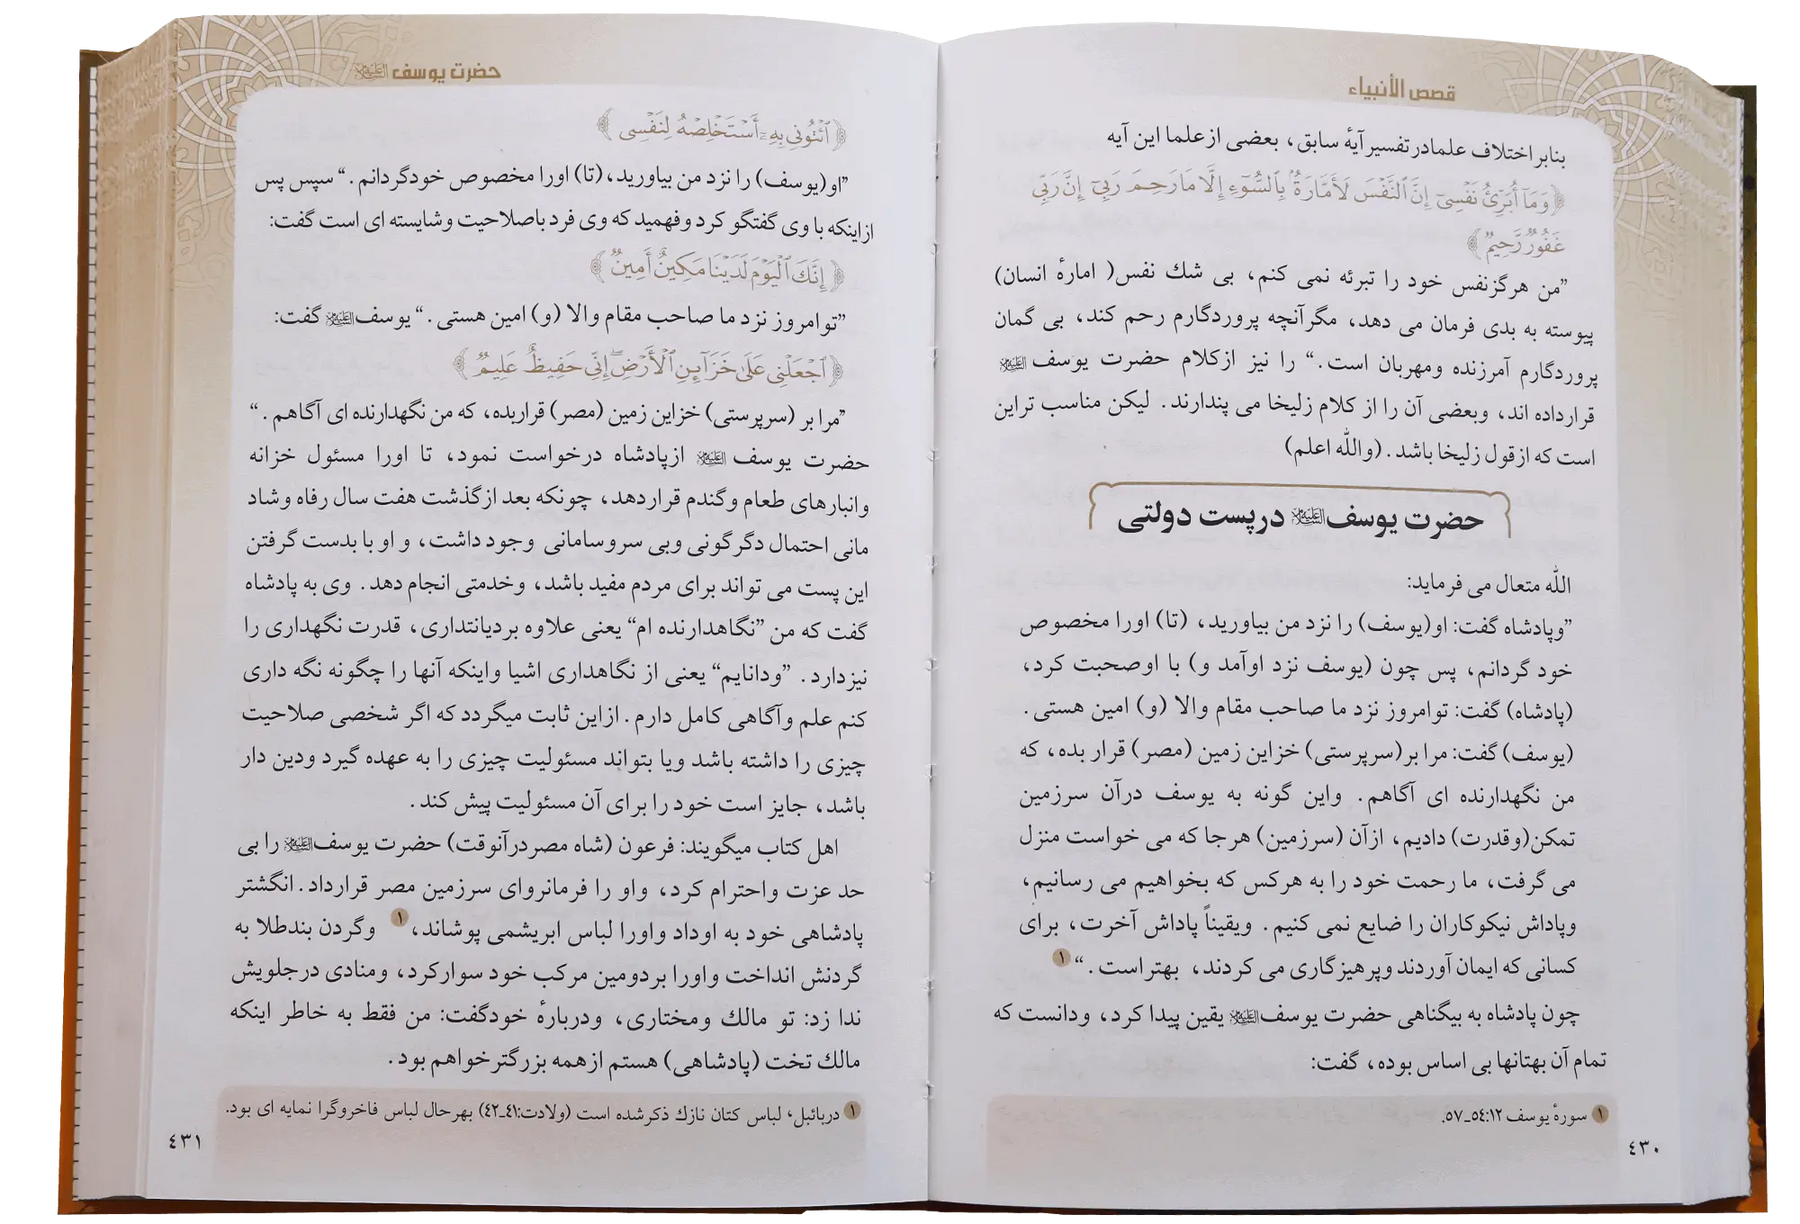 قصص الأنبياء
بنابر اختلاف علمادر تفسیر آیهٔ سابق، بعضی از علما این آیه
﴿وَمَآ أُبَرِّئُ نَفۡسِيٓۚ إِنَّ ٱلنَّفۡسَ لَأَمَّارَةُۢ بِٱلسُّوٓءِ إِلَّا مَا رَحِمَ رَبِّيٓۚ إِنَّ رَبِّي
غَفُورٞ رَّحِيمٞ﴾
”من هرگزنفس خود را تبرئه نمی کنم، بی شك نفس( امارهٔ انسان)
پیوسته به بدی فرمان می دهد، مگرآنچه پروردگارم رحم کند، بی گمان
پروردگارم آمرزنده ومهربان است.“ را نیز ازکلام حضرت یوسف علیه السلام
قرارداده اند، وبعضی آن را از کلام زلیخا می پندارند. لیکن مناسب تراین
است که ازقول زلیخا باشد. (والله اعلم)
حضرت یوسف علیه السلام درپست دولتی
الله متعال می فرماید:
”وپادشاه گفت: او(یوسف) را نزد من بیاورید، (تا) اورا مخصوص
خود گردانم، پس چون (یوسف نزد اوآمد و) با اوصحبت کرد،
(پادشاه) گفت: توامروز نزد ما صاحب مقام والا (و) امین هستی.
(یوسف) گفت: مرا بر(سرپرستی) خزاین زمین (مصر) قرار بده، که
من نگهدارنده ای آگاهم. واین گونه به یوسف درآن سرزمین
تمکن(وقدرت) دادیم، ازآن (سرزمین) هرجا که می خواست منزل
می گرفت، ما رحمت خود را به هرکس که بخواهیم می رسانیم،
وپاداش نیکوکاران را ضایع نمی کنیم. ویقیناً پاداش آخرت، برای
کسانی که ایمان آوردند وپرهیزگاری می کردند، بهتراست.“ ١
چون پادشاه به بیگناهی حضرت یوسف علیه السلام یقین پیدا کرد، ودانست که
تمام آن بهتانها بی اساس بوده، گفت:
١ سورهٔ یوسف ١٢:٥٤ـ٥٧.
٤٣٠
حضرت یوسف علیه السلام
﴿ٱئۡتُونِي بِهِۦٓ أَسۡتَخۡلِصۡهُ لِنَفۡسِي﴾
”او(یوسف) را نزد من بیاورید،(تا) اورا مخصوص خودگردانم.“ سپس پس
ازاینکه با وی گفتگو کرد وفهمید که وی فرد باصلاحیت وشایسته ای است گفت:
﴿إِنَّكَ ٱلۡيَوۡمَ لَدَيۡنَا مَكِينٌ أَمِينٞ﴾
”توامروز نزد ما صاحب مقام والا (و) امین هستی.“ یوسف علیه السلام گفت:
﴿ٱجۡعَلۡنِي عَلَىٰ خَزَآئِنِ ٱلۡأَرۡضِۖ إِنِّي حَفِيظٌ عَلِيمٞ﴾
”مرا بر (سرپرستی) خزاین زمین (مصر) قراربده، که من نگهدارنده ای آگاهم.“
حضرت یوسف علیه السلام ازپادشاه درخواست نمود، تا اورا مسئول خزانه
وانبارهای طعام وگندم قراردهد، چونکه بعد ازگذشت هفت سال رفاه وشاد
مانی احتمال دگرگونی وبی سروسامانی وجود داشت، و او با بدست گرفتن
این پست می تواند برای مردم مفید باشد، وخدمتی انجام دهد. وی به پادشاه
گفت که من ”نگاهدارنده ام“ یعنی علاوه بردیانتداری، قدرت نگهداری را
نیزدارد. ”ودانایم“ یعنی از نگاهداری اشیا واینکه آنها را چگونه نگه داری
کنم علم وآگاهی کامل دارم. ازاین ثابت میگردد که اگر شخصی صلاحیت
چیزی را داشته باشد ویا بتواند مسئولیت چیزی را به عهده گیرد ودین دار
باشد، جایز است خود را برای آن مسئولیت پیش کند.
اهل کتاب میگویند: فرعون (شاه مصردرآنوقت) حضرت یوسف علیه السلام را بی
حد عزت واحترام کرد، واو را فرمانروای سرزمین مصر قرارداد. انگشتر
پادشاهی خود به اوداد واورا لباس ابریشمی پوشاند، ١ وگردن بندطلا به
گردنش انداخت واورا بردومین مرکب خود سوارکرد، ومنادی درجلویش
ندا زد: تو مالك ومختاری، ودربارهٔ خودگفت: من فقط به خاطر اینکه
مالك تخت (پادشاهی) هستم ازهمه بزرگترخواهم بود.
١ دربائبل، لباس کتان نازك ذکرشده است (ولادت:٤١ـ٤٢) بهرحال لباس فاخروگرا نمایه ای بود.
٤٣١